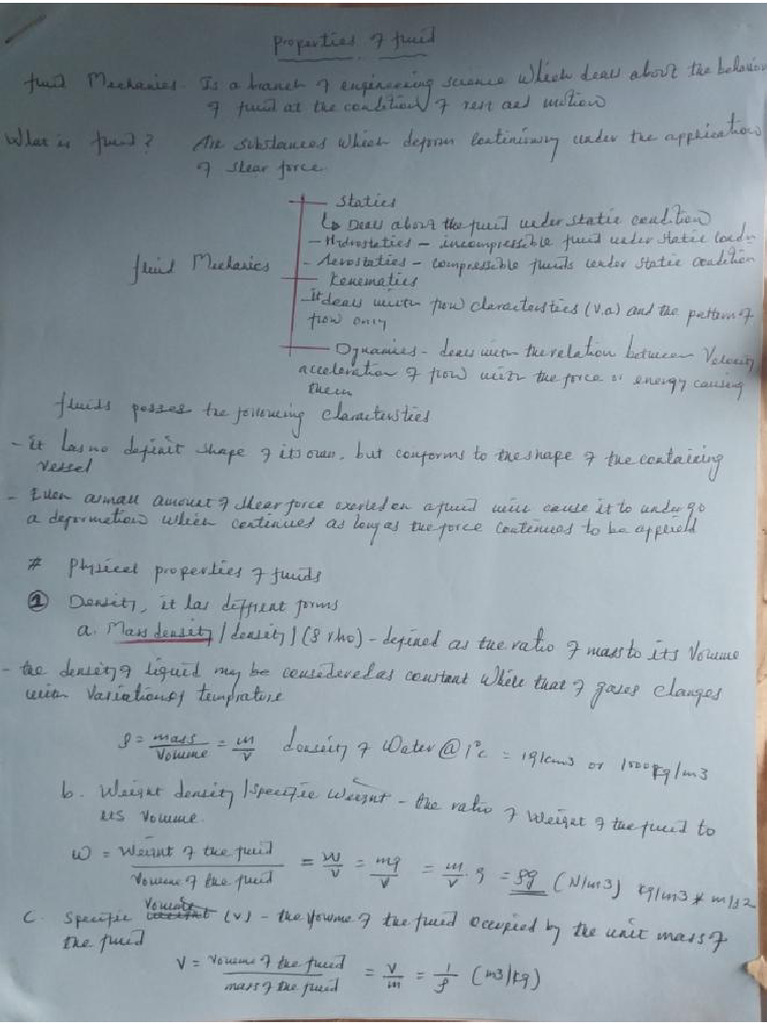 Properties of fluid
fluid Mechanics. Is a branch of engineering science which deals about the behavior
of fluid at the condition of rest and motion
What is fluid? Are substances which deform continiously under the application
of shear force.
Statics
↳ Deals about the fluid under static condition
- Hidrostatics - incompressible fluid under static loads
fluid Mechanics
- Aerostatics - compressible fluids under static condition
Kenematics
- It deals with flow characteristics (v,a) and the pattern of
flow only
Dynamics - deals with the relation between Velocity,
acceleration of flow with the force or energy causing
them
fluids posses the following characteristics
- it has no definit shape of its own, but conforms to the shape of the containing
vessel
- Even a small amount of shear force exerted on a fluid will cause it to undergo
a deformation which continues as long as the force continues to be applied
# Physical properties of fluids
① Density, it has diffrent forms
a. Mass density / density / (ρ rho) - defined as the ratio of mass to its Volume
- the density of liquid may be considered as constant while that of gases changes
with variation of temprature
ρ = mass / Volume = m / v density of Water @ 1°c = 1g/cm3 or 1000kg/m3
b. Weight density / specific Weight - the ratio of Weight of the fluid to
its Volume.
ω = Weight of the fluid / Volume of the fluid = w / v = mg / v = m / v g = ρg (N/m3) kg/m3 * m/s2
C. Specific Volume (v) - the Volume of the fluid occupied by the unit mass of
the fluid
V = Volume of the fluid / mass of the fluid = v / m = 1 / ρ (m3/kg)